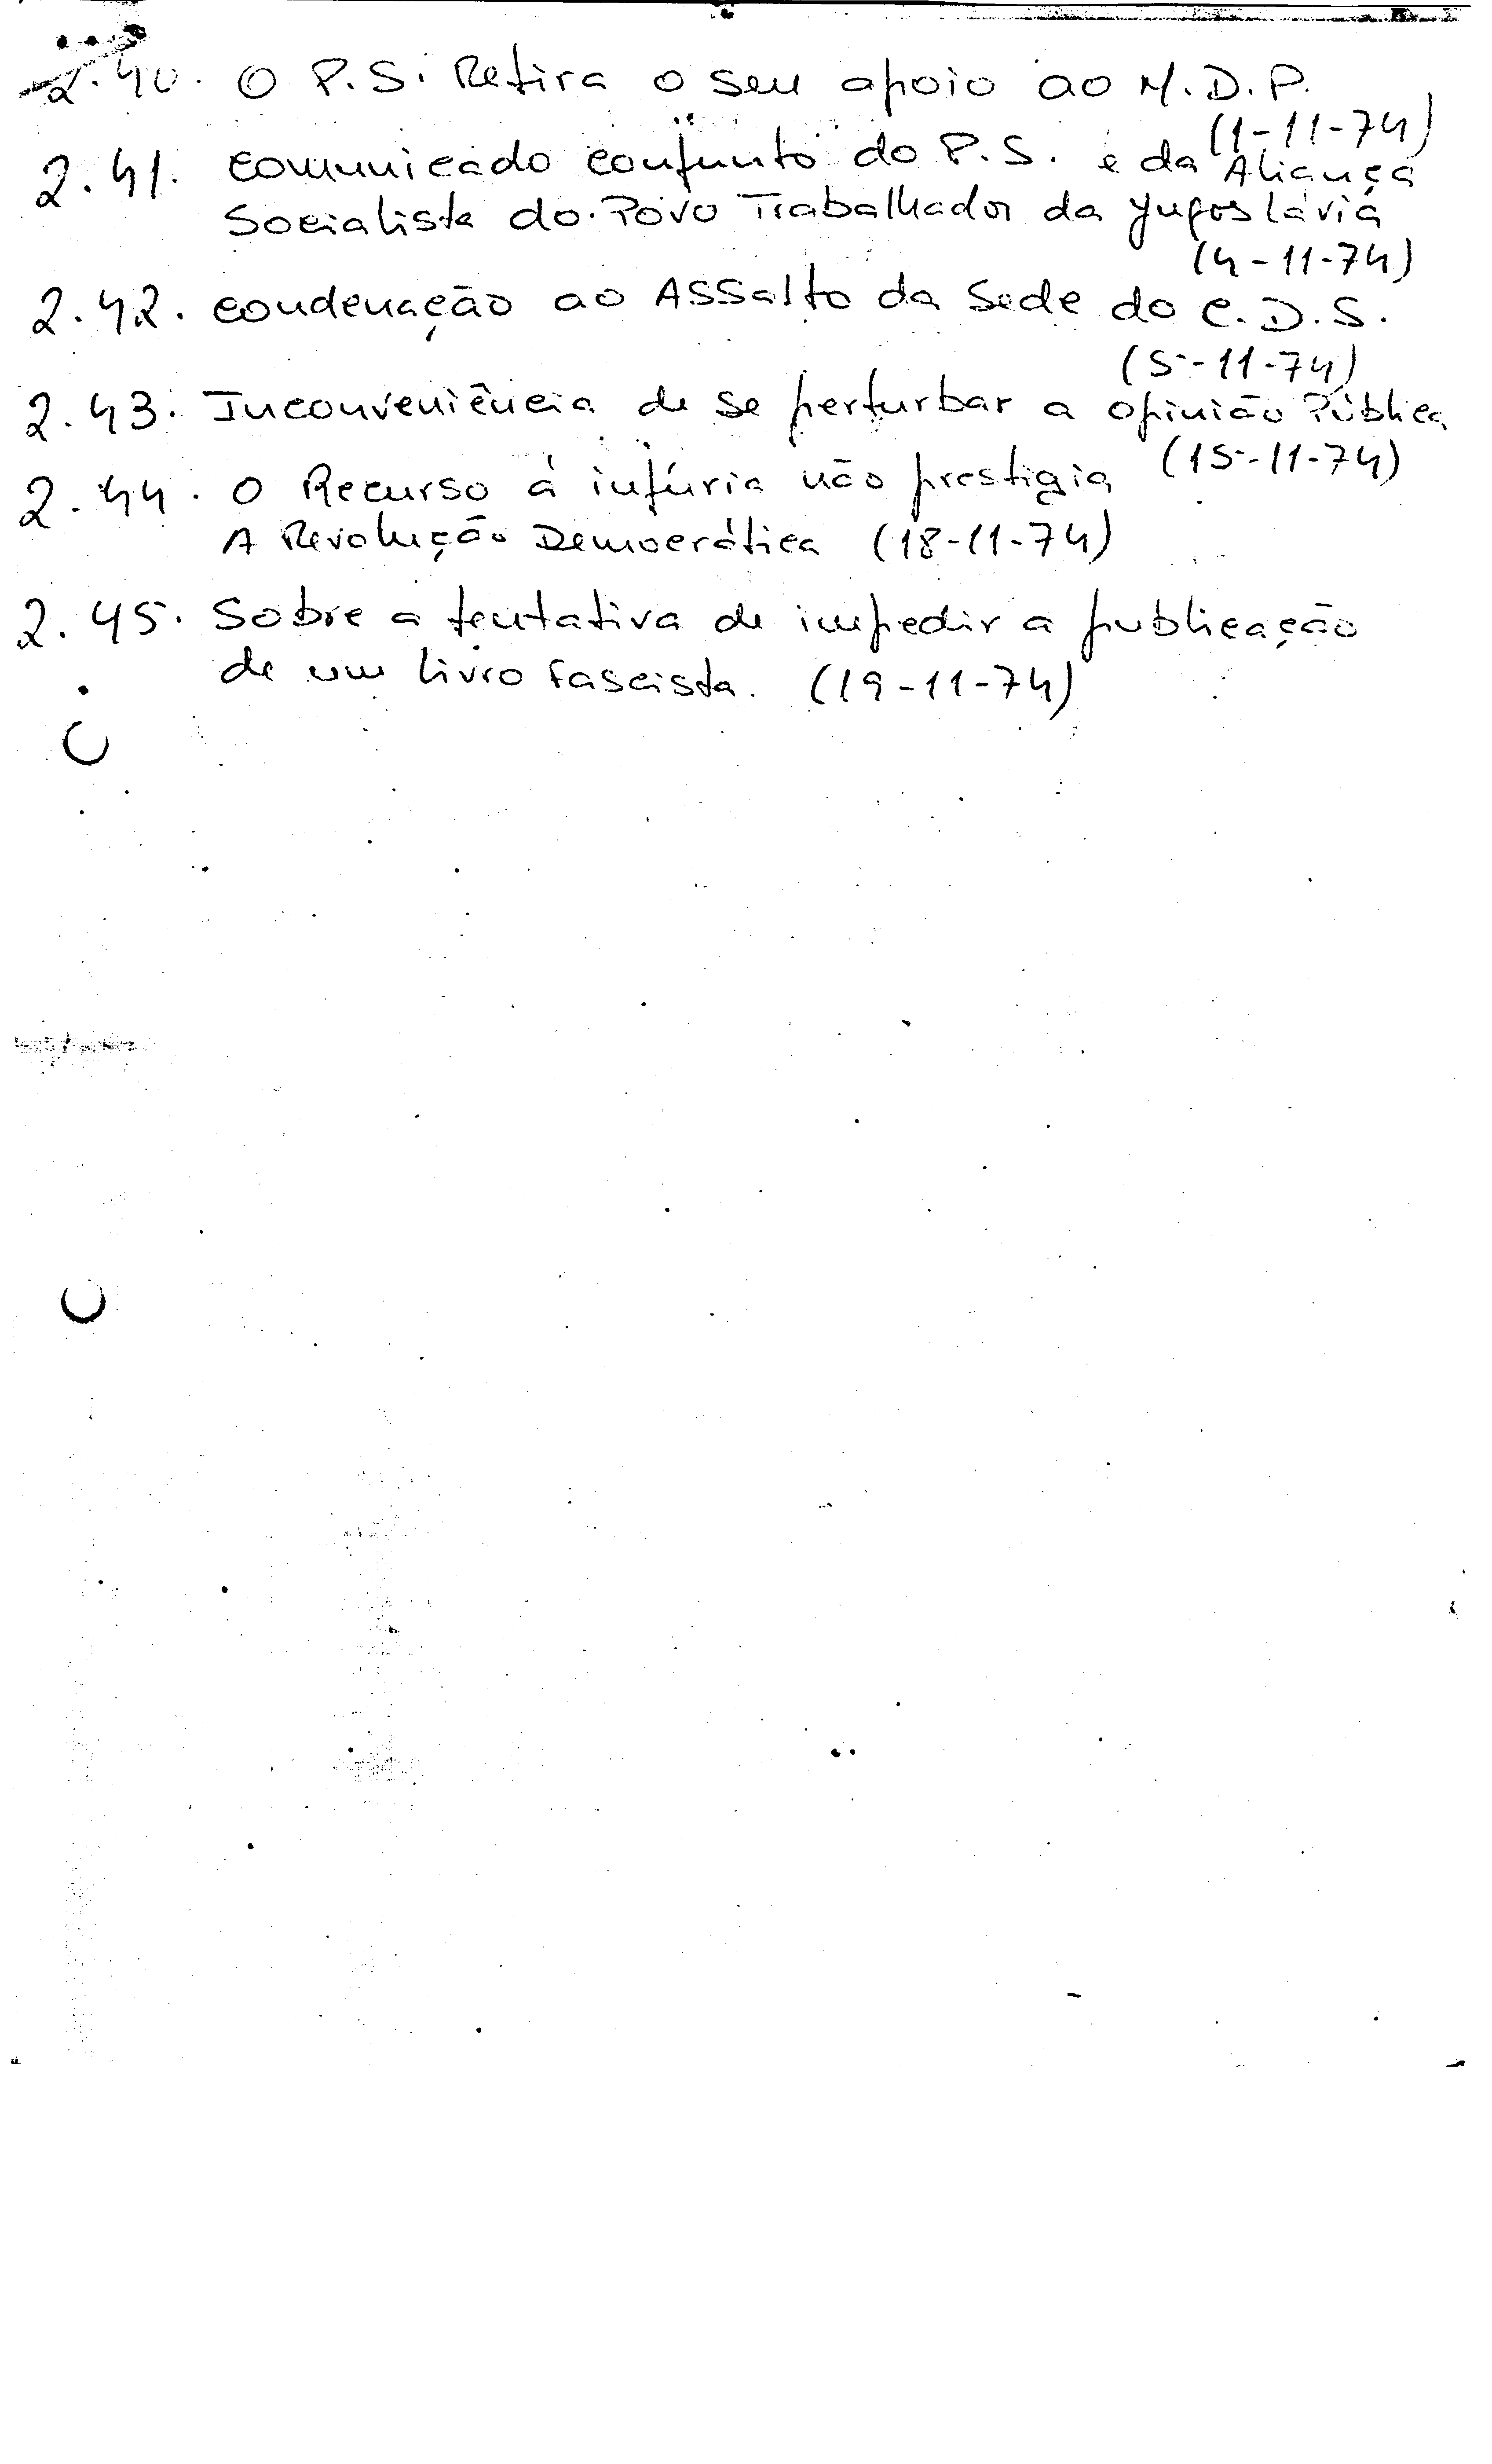 2.40. O P.S. Retira o seu apoio ao M.D.P.
(1-11-74)
2.41. comunicado conjunto do P.S. e da Aliança
Socialista do Povo Trabalhador da Jugoslávia
(4-11-74)
2.42. condenação ao ASSalto da Sede do C.D.S.
(5-11-74)
2.43. Inconveniência de se perturbar a opinião Pública
(15-11-74)
2.44. O Recurso à injúria não prestigia
A Revolução Democrática (18-11-74)
2.45. Sobre a tentativa de impedir a publicação
de um livro fascista. (19-11-74)